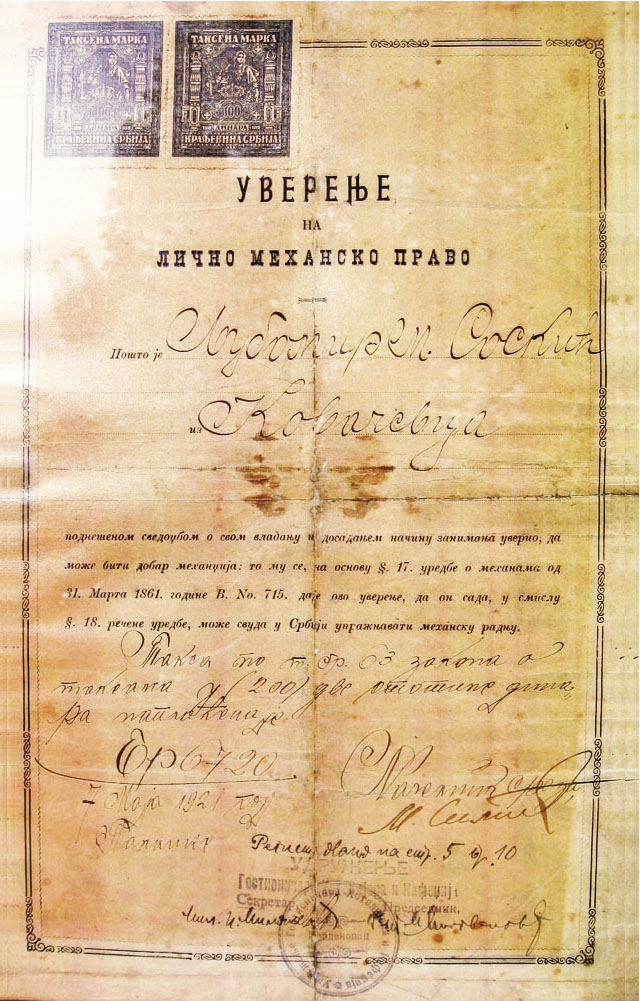 ТАКСЕНА МАРКА ТАКСЕНА МАРКА
100 100
ДИНАРА ДИНАРА
КРАЉЕВИНА СРБИЈА КРАЉЕВИНА СРБИЈА
УВЕРЕЊЕ
НА
ЛИЧНО МЕХАНСКО ПРАВО
Пошто је Љубомир М. Соскић
из Ковачевца
поднешеном сведоџбом о свом владању и досадањем начину занимања уверио, да
може бити добар механџија: то му се, на основу §. 17. уредбе о механама од
31. Марта 1861. године В. No. 715. даје ово уверење, да он сада, у смислу
§. 18. речене уредбе, може свуда у Србији упражњавати механску радњу.
Такса по т. бр. 63 закона о
таксама у (200) две стотине дина-
ра наплаћена је.
Бр 6720
7 Маја 1921 год
Паланка
на стр. 5 бр. 10
УДРУЖЕЊЕ
и Кафеџија
Секретар, Председник,